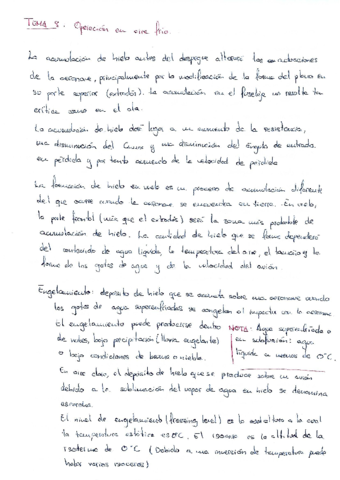 TEMA 9. Operación en aire frío.
La acumulación de hielo antes del despegue alterará las condiciones
de la aeronave, principalmente por la modificación de la forma del plano en
su parte superior (extradós). La acumulación en el fuselaje no resulta tan
crítica como en el ala.
La acumulación de hielo dará lugar a un aumento de la resistencia,
una disminución del CLmax y una disminución del ángulo de entrada
en pérdida y por tanto aumento de la velocidad de pérdida
La formación de hielo en vuelo es un proceso de acumulación diferente
del que ocurre cuando la aeronave se encuentra en tierra. En vuelo,
la parte frontal (más que el extradós) será la zona más probable de
acumulación de hielo. La cantidad de hielo que se forme dependerá
del contenido de agua líquida, la temperatura del aire, el tamaño y la
forma de las gotas de agua y de la velocidad del avión.
Engelamiento: depósito de hielo que se acumula sobre una aeronave cuando
las gotas de agua superenfriadas se congelan al impactar con la aeronave
El engelamiento puede producirse dentro
de nubes, bajo precipitación (lluvia engelante)
o bajo condiciones de bruma o niebla.
NOTA: Agua superenfriada o
en subfusión: agua
líquida a menos de 0°C.
En aire claro, el depósito de hielo que se produce sobre un avión
debido a la sublimación del vapor de agua en hielo se denomina
escarcha.
El nivel de engelamiento (freezing level) es la altitud a la cual
la temperatura estática es 0°C. El isocero es la altitud de la
isoterma de 0°C (Debido a una inversión de temperatura puede
haber varios isoceros)